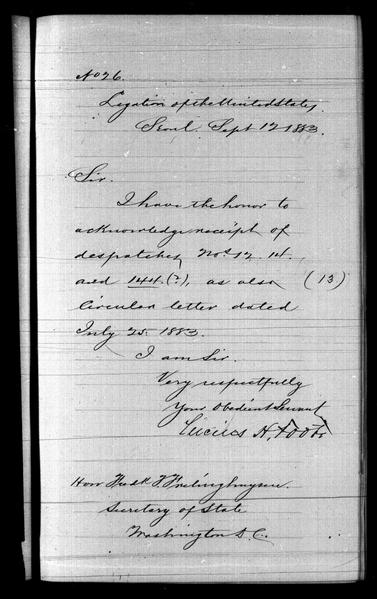 No 26.
Legation of the United States,
Seoul. Sept 12 1883.
Sir.
I have the honor to
acknowledge receipt of
despatches, Nos 12. 14.
and 144 (?), as also (13)
Circular letter dated
July 25. 1883.
I am Sir.
Very respectfully
Your Obedient Servant
Lucius H. Foote
Hon Fredk T Frelinghuysen.
Secretary of State
Washington D.C.